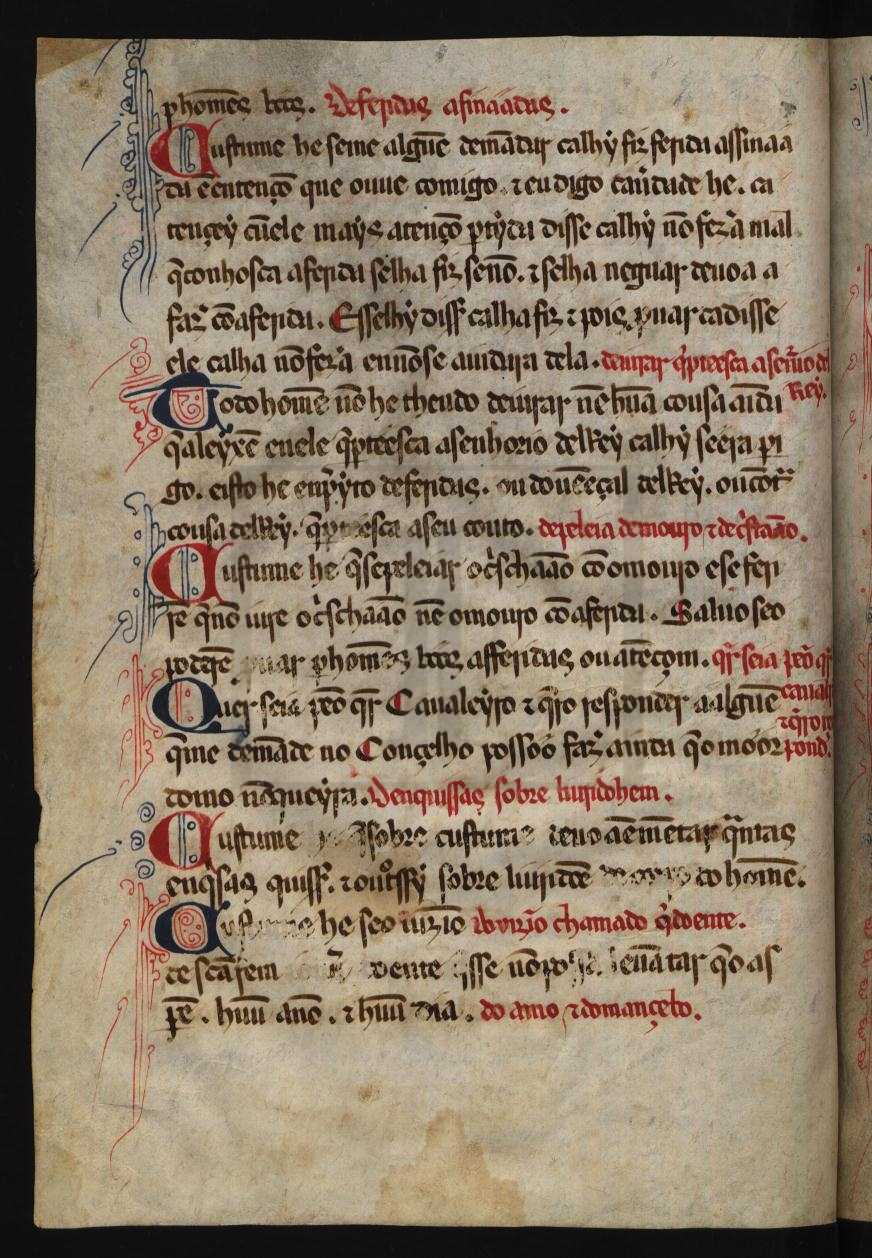 phomẽs bõs. Deferidas asinaadas.
Custume he seme algũe demãdar calhy fiz ferida assinaa
da ẽ cutençõ que ouue comigo. ⁊ eu digo caũdade he. ca
tençey cũele mays atençõ ptyda disse calhy nõ fez̃a mal
q̃conhosca aferida selha fiz senõ. ⁊ selha neguar deuoa a
faz̃ cõaferida. Esselhy diss̃ calha fiz ⁊ pois puar cadisse
ele calha nõ fez̃a ennõse auidira dela. deiurar q̃pteesca aseñuo del
Rey.
Todo homẽ nõ he theudo deiurar nẽ hũa cousa aida
q̃aleyxẽ enele q̃pteesca asenhorio delRey calhy seera pi
go. eisto he enp̃yto deferidas. ou douẽçal delRey. ou cõt̃
cousa delRey. q̃pteesca aseu couto. depeleia demouro ⁊ dec̃staão.
Custume he q̃sepeleiar oc̃schaão cõ omouro e se feri
rẽ q̃nõ iure oc̃schaão nẽ omouro cõ aferida. Saluo seo
poderẽ puar phomẽs bõs afferidas ou atẽçom. q̃r seia peõ q̃r
caualr
⁊ q̃ro res
Quer seia peõ q̃r Caualeyro ⁊ q̃ro responder aalgũe
q̃me demãde no Conçelho possoo faz̃ ainda q̃o moor
pond̃.
domo nõ queyra. Denquissas sobre liuridohem.
Custume sobre custume deuo aẽmẽtar q̃ntas
enq̃sas quiss̃. ⁊ outssy sobre liuridõe do homẽ.
Custume he seo iuzão do vizĩo chamado q̃doente.
de scãrem doente disse nõ leuãtar q̃o as
pẽ. huũ anõ. ⁊ huũ dia. do amo ⁊ domançebo.